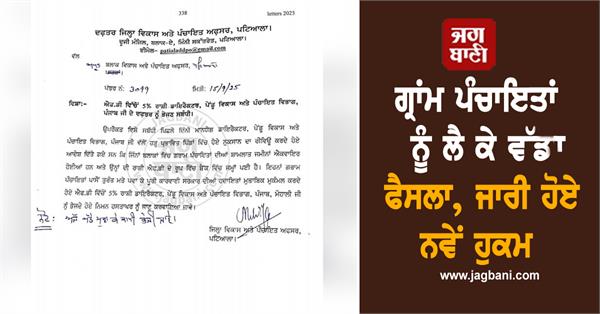 338
letters 2025
ਦਫਤਰ ਜ਼ਿਲ੍ਹਾ ਵਿਕਾਸ ਅਤੇ ਪੰਚਾਇਤ ਅਫ਼ਸਰ, ਪਟਿਆਲਾ।
ਦੂਜੀ ਮੰਜ਼ਿਲ, ਬਲਾਕ-ਏ, ਮਿੰਨੀ ਸਕੱਤਰੇਤ, ਪਟਿਆਲਾ।
ਈਮੇਲ- patialaddpo@gmail.com
ਵੱਲ
ਬਲਾਕ ਵਿਕਾਸ ਅਤੇ ਪੰਚਾਇਤ ਅਫ਼ਸਰ,
ਨੰਬਰ ਨੰ: 3099 ਮਿਤੀ: 15/9/25
ਵਿਸ਼ਾ:- ਐਫ.ਡੀ ਵਿੱਚੋਂ 5% ਰਾਸ਼ੀ ਡਾਇਰੈਕਟਰ, ਪੇਂਡੂ ਵਿਕਾਸ ਅਤੇ ਪੰਚਾਇਤ ਵਿਭਾਗ,
ਪੰਜਾਬ ਜੀ ਦੇ ਦਫਤਰ ਨੂੰ ਭੇਜਣ ਸਬੰਧੀ।
ਉਪਰੋਕਤ ਵਿਸ਼ੇ ਸਬੰਧੀ ਪਿਛਲੇ ਦਿਨੀਂ ਮਾਨਯੋਗ ਡਾਇਰੈਕਟਰ, ਪੇਂਡੂ ਵਿਕਾਸ ਅਤੇ
ਪੰਚਾਇਤ ਵਿਭਾਗ, ਪੰਜਾਬ ਜੀ ਵੱਲੋਂ ਹੜ੍ਹ ਪ੍ਰਭਾਵਿਤ ਪਿੰਡਾਂ ਵਿੱਚ ਹੋਏ ਨੁਕਸਾਨ ਦਾ ਰੀਵਿਊ ਕਰਦੇ ਹੋਏ
ਆਦੇਸ਼ ਦਿੱਤੇ ਗਏ ਸਨ ਕਿ ਜਿੰਨਾਂ ਬਲਾਕਾਂ ਵਿੱਚ ਗਰਾਮ ਪੰਚਾਇਤਾਂ ਦੀਆਂ ਸ਼ਾਮਲਾਤ ਜ਼ਮੀਨਾਂ ਐਕਵਾਇਰ
ਹੋਈਆਂ ਹਨ ਅਤੇ ਉਨ੍ਹਾਂ ਦੀ ਰਾਸ਼ੀ ਐਫ.ਡੀ ਦੇ ਰੂਪ ਵਿੱਚ ਬੈਂਕ ਵਿੱਚ ਜਮ੍ਹਾਂ ਪਈ ਹੈ। ਇਹਨਾਂ ਗਰਾਮ
ਪੰਚਾਇਤਾਂ ਪਾਸੋਂ ਤੁਰੰਤ ਮਤੇ ਪਵਾ ਕੇ ਪੂਰੀ ਕਾਰਵਾਈ ਸਰਕਾਰ ਦੀਆਂ ਹਦਾਇਤਾਂ ਮੁਤਾਬਿਕ ਮੁਕੰਮਲ ਕਰਦੇ
ਹੋਏ ਐਫ.ਡੀ ਵਿੱਚੋਂ 5% ਰਾਸ਼ੀ ਡਾਇਰੈਕਟਰ, ਪੇਂਡੂ ਵਿਕਾਸ ਅਤੇ ਪੰਚਾਇਤ ਵਿਭਾਗ, ਪੰਜਾਬ, ਮੋਹਾਲੀ ਜੀ
ਨੂੰ ਭੇਜਦੇ ਹੋਏ ਨਿਮਨ ਹਸਤਾਖਰ ਨੂੰ ਜਾਣੂ ਕਰਵਾਇਆ ਜਾਵੇ।
ਜ਼ਿਲ੍ਹਾ ਵਿਕਾਸ ਅਤੇ ਪੰਚਾਇਤ ਅਫ਼ਸਰ,
ਪਟਿਆਲਾ।
JAGBANI
ਜਗ
ਬਾਣੀ
ਗ੍ਰਾਂਮ ਪੰਚਾਇਤਾਂ
ਨੂੰ ਲੈ ਕੇ ਵੱਡਾ
ਫੈਸਲਾ, ਜਾਰੀ ਹੋਏ
ਨਵੇਂ ਹੁਕਮ
www.jagbani.com